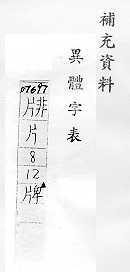 補充資料
異體字表
07697
片
8
12
牌